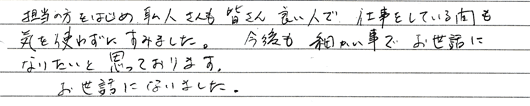 担当の方をはじめ 職人さんも 皆さん 良い人で 仕事をしている間も
気を使わずにすみました。 今後も 細かい事で お世話に
なりたいと思っております。
お世話になりました。